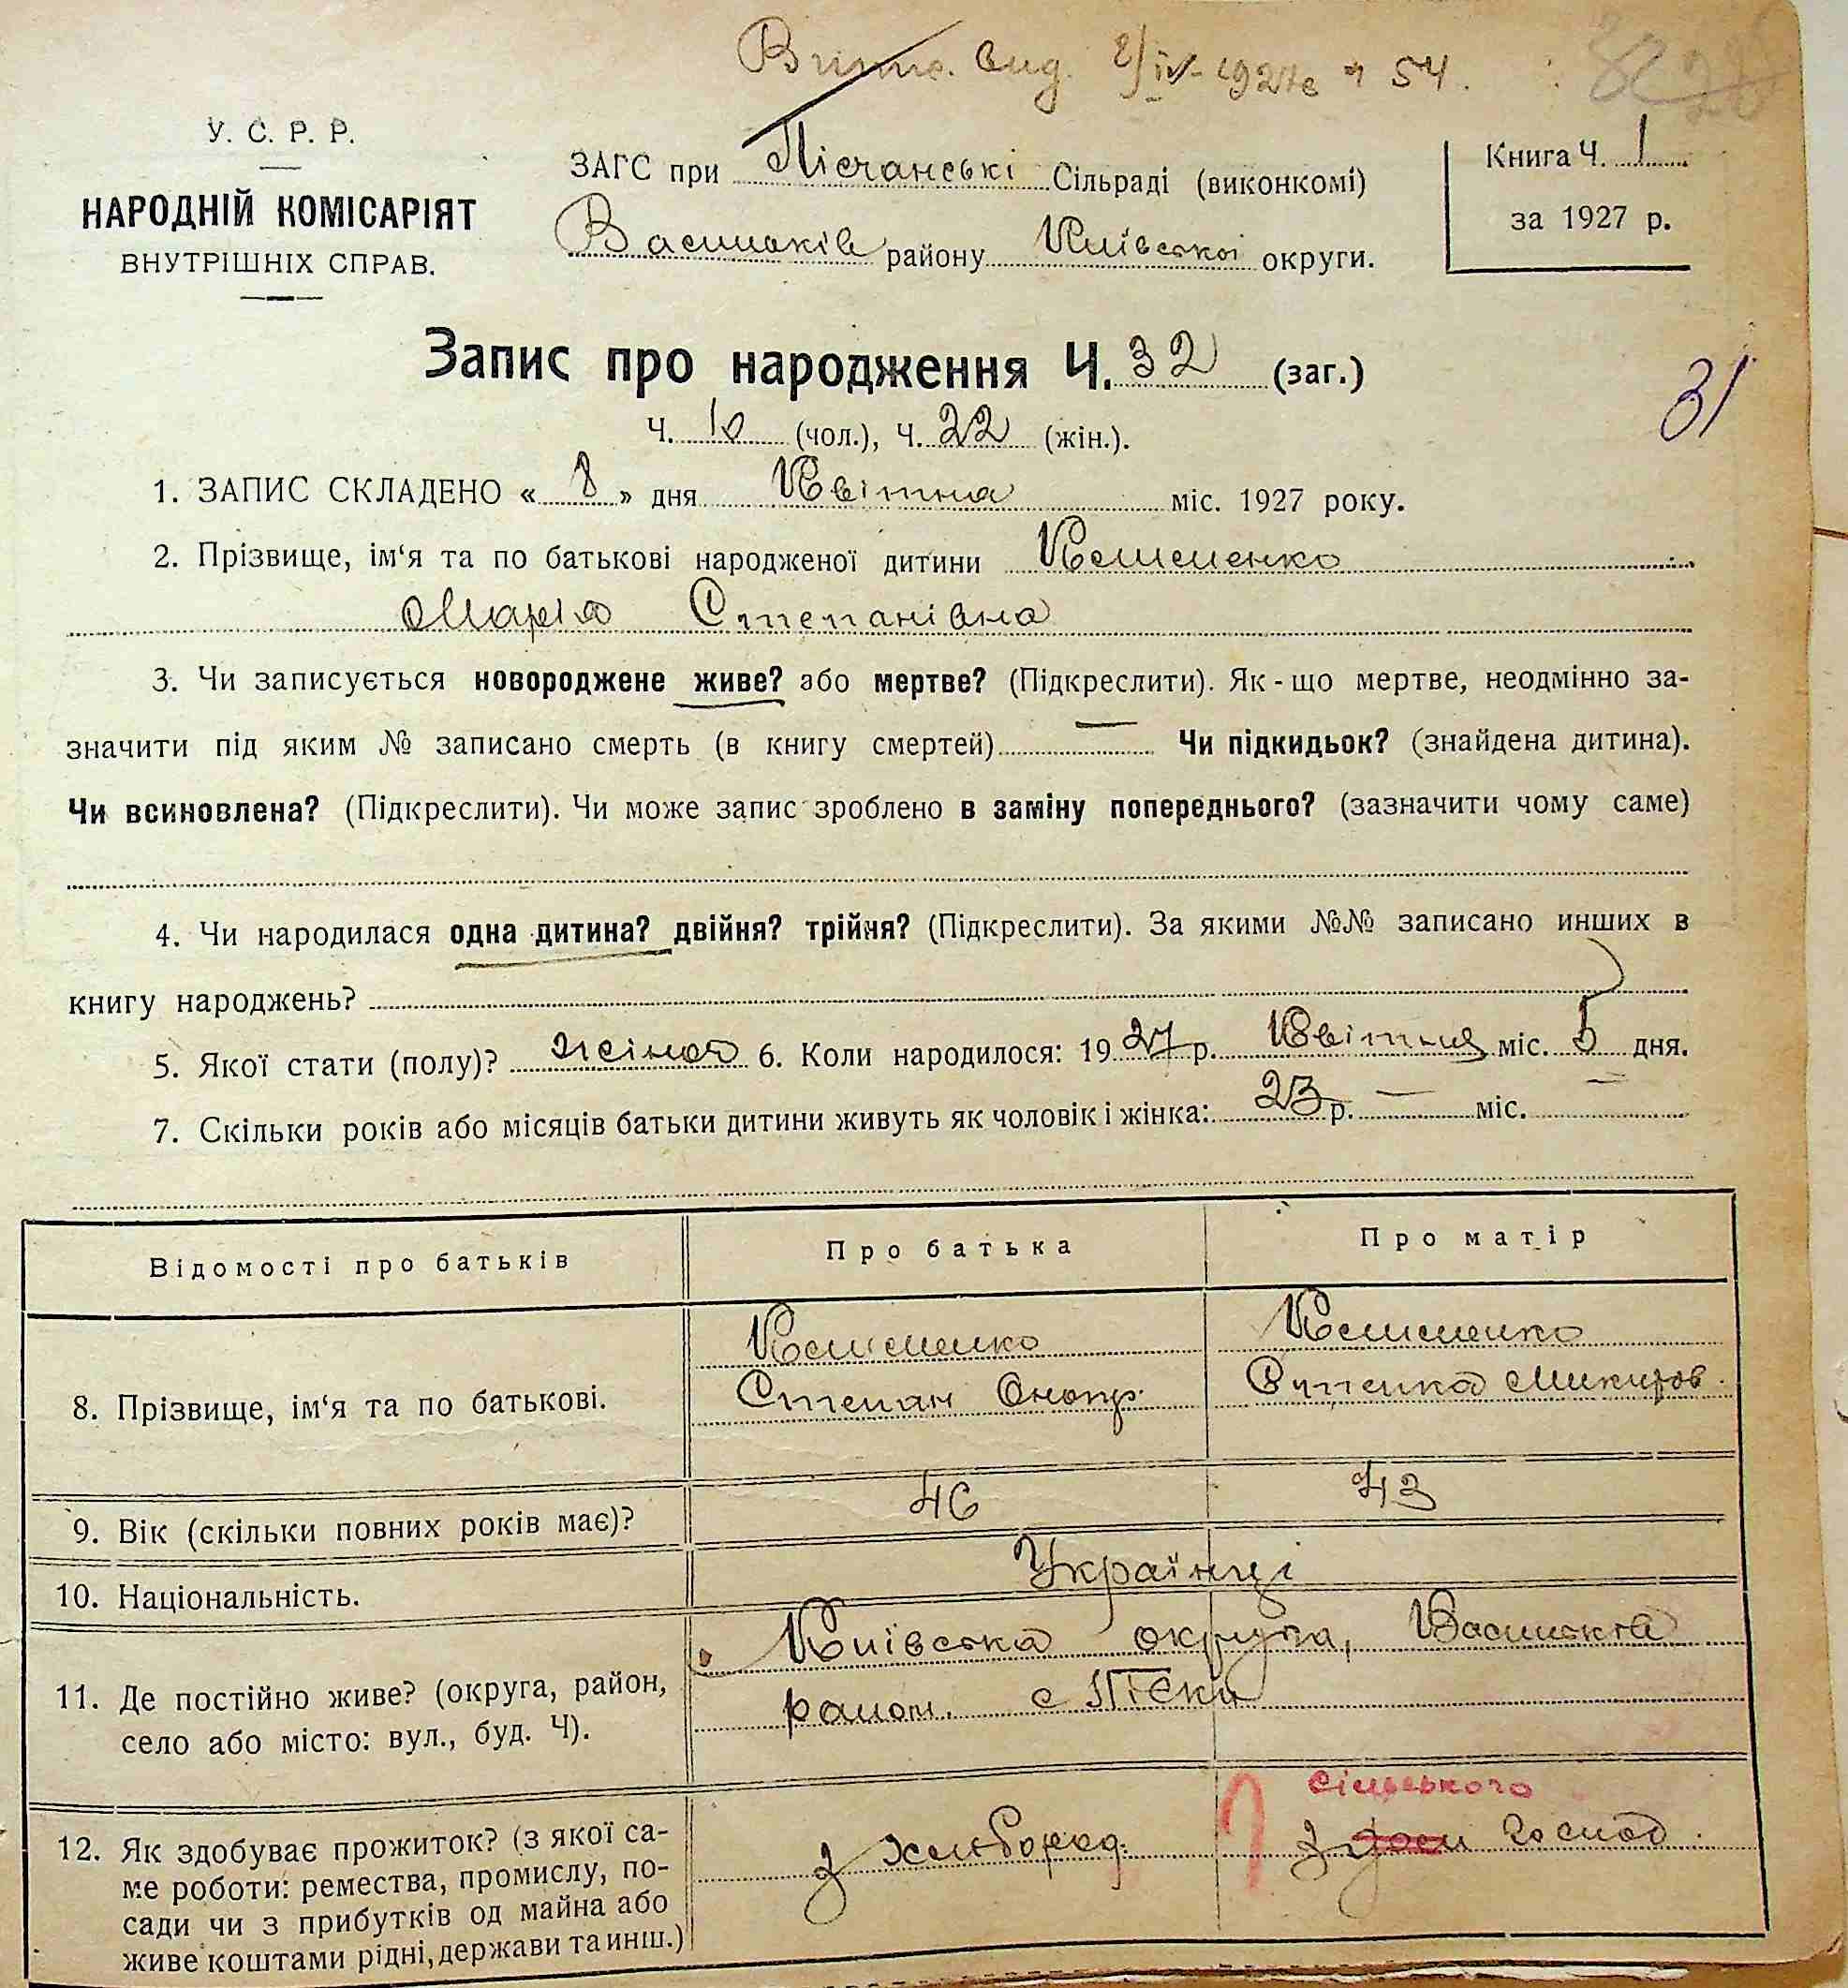 вид. IV-1927 54.
У. С. Р. Р.
НАРОДНІЙ КОМІСАРІЯТ
ВНУТРІШНІХ СПРАВ.
ЗАГС при Пісчанські Сільраді (виконкомі)
Васильків району Київської округи.
Книга Ч. 1
за 1927 р.
Запис про народження Ч. 32 (заг.)
31
Ч. 10 (чол.), Ч. 22 (жін.).
1. ЗАПИС СКЛАДЕНО « 8 » дня Квітня міс. 1927 року.
2. Прізвище, ім‘я та по батькові народженої дитини Клименко
Марія Степанівна
3. Чи записується новороджене живе? або мертве? (Підкреслити). Як-що мертве, неодмінно за-
значити під яким № записано смерть (в книгу смертей) — Чи підкидьок? (знайдена дитина).
Чи всиновлена? (Підкреслити). Чи може запис зроблено в заміну попереднього? (зазначити чому саме)
4. Чи народилася одна дитина? двійня? трійня? (Підкреслити). За якими №№ записано инших в
книгу народжень?
5. Якої стати (полу)? жіноч 6. Коли народилося: 1927 р. Квітня міс. 5 дня.
7. Скільки років або місяців батьки дитини живуть як чоловік і жінка: 23 р. — міс. —
Відомості про батьків Про батька Про матір
8. Прізвище, ім‘я та по батькові.
Клименко Клименко
Степан Онопр.
9. Вік (скільки повних років має)? 46 43
10. Національність. Українці
11. Де постійно живе? (округа, район,
село або місто: вул., буд. Ч).
Київська округа, Васильків
район. с Піски
12. Як здобуває прожиток? (з якої са-
ме роботи: ремества, промислу, по-
сади чи з прибутків од майна або
живе коштами рідні, держави та инш.)
з хлібороб.
сільського
з господ.